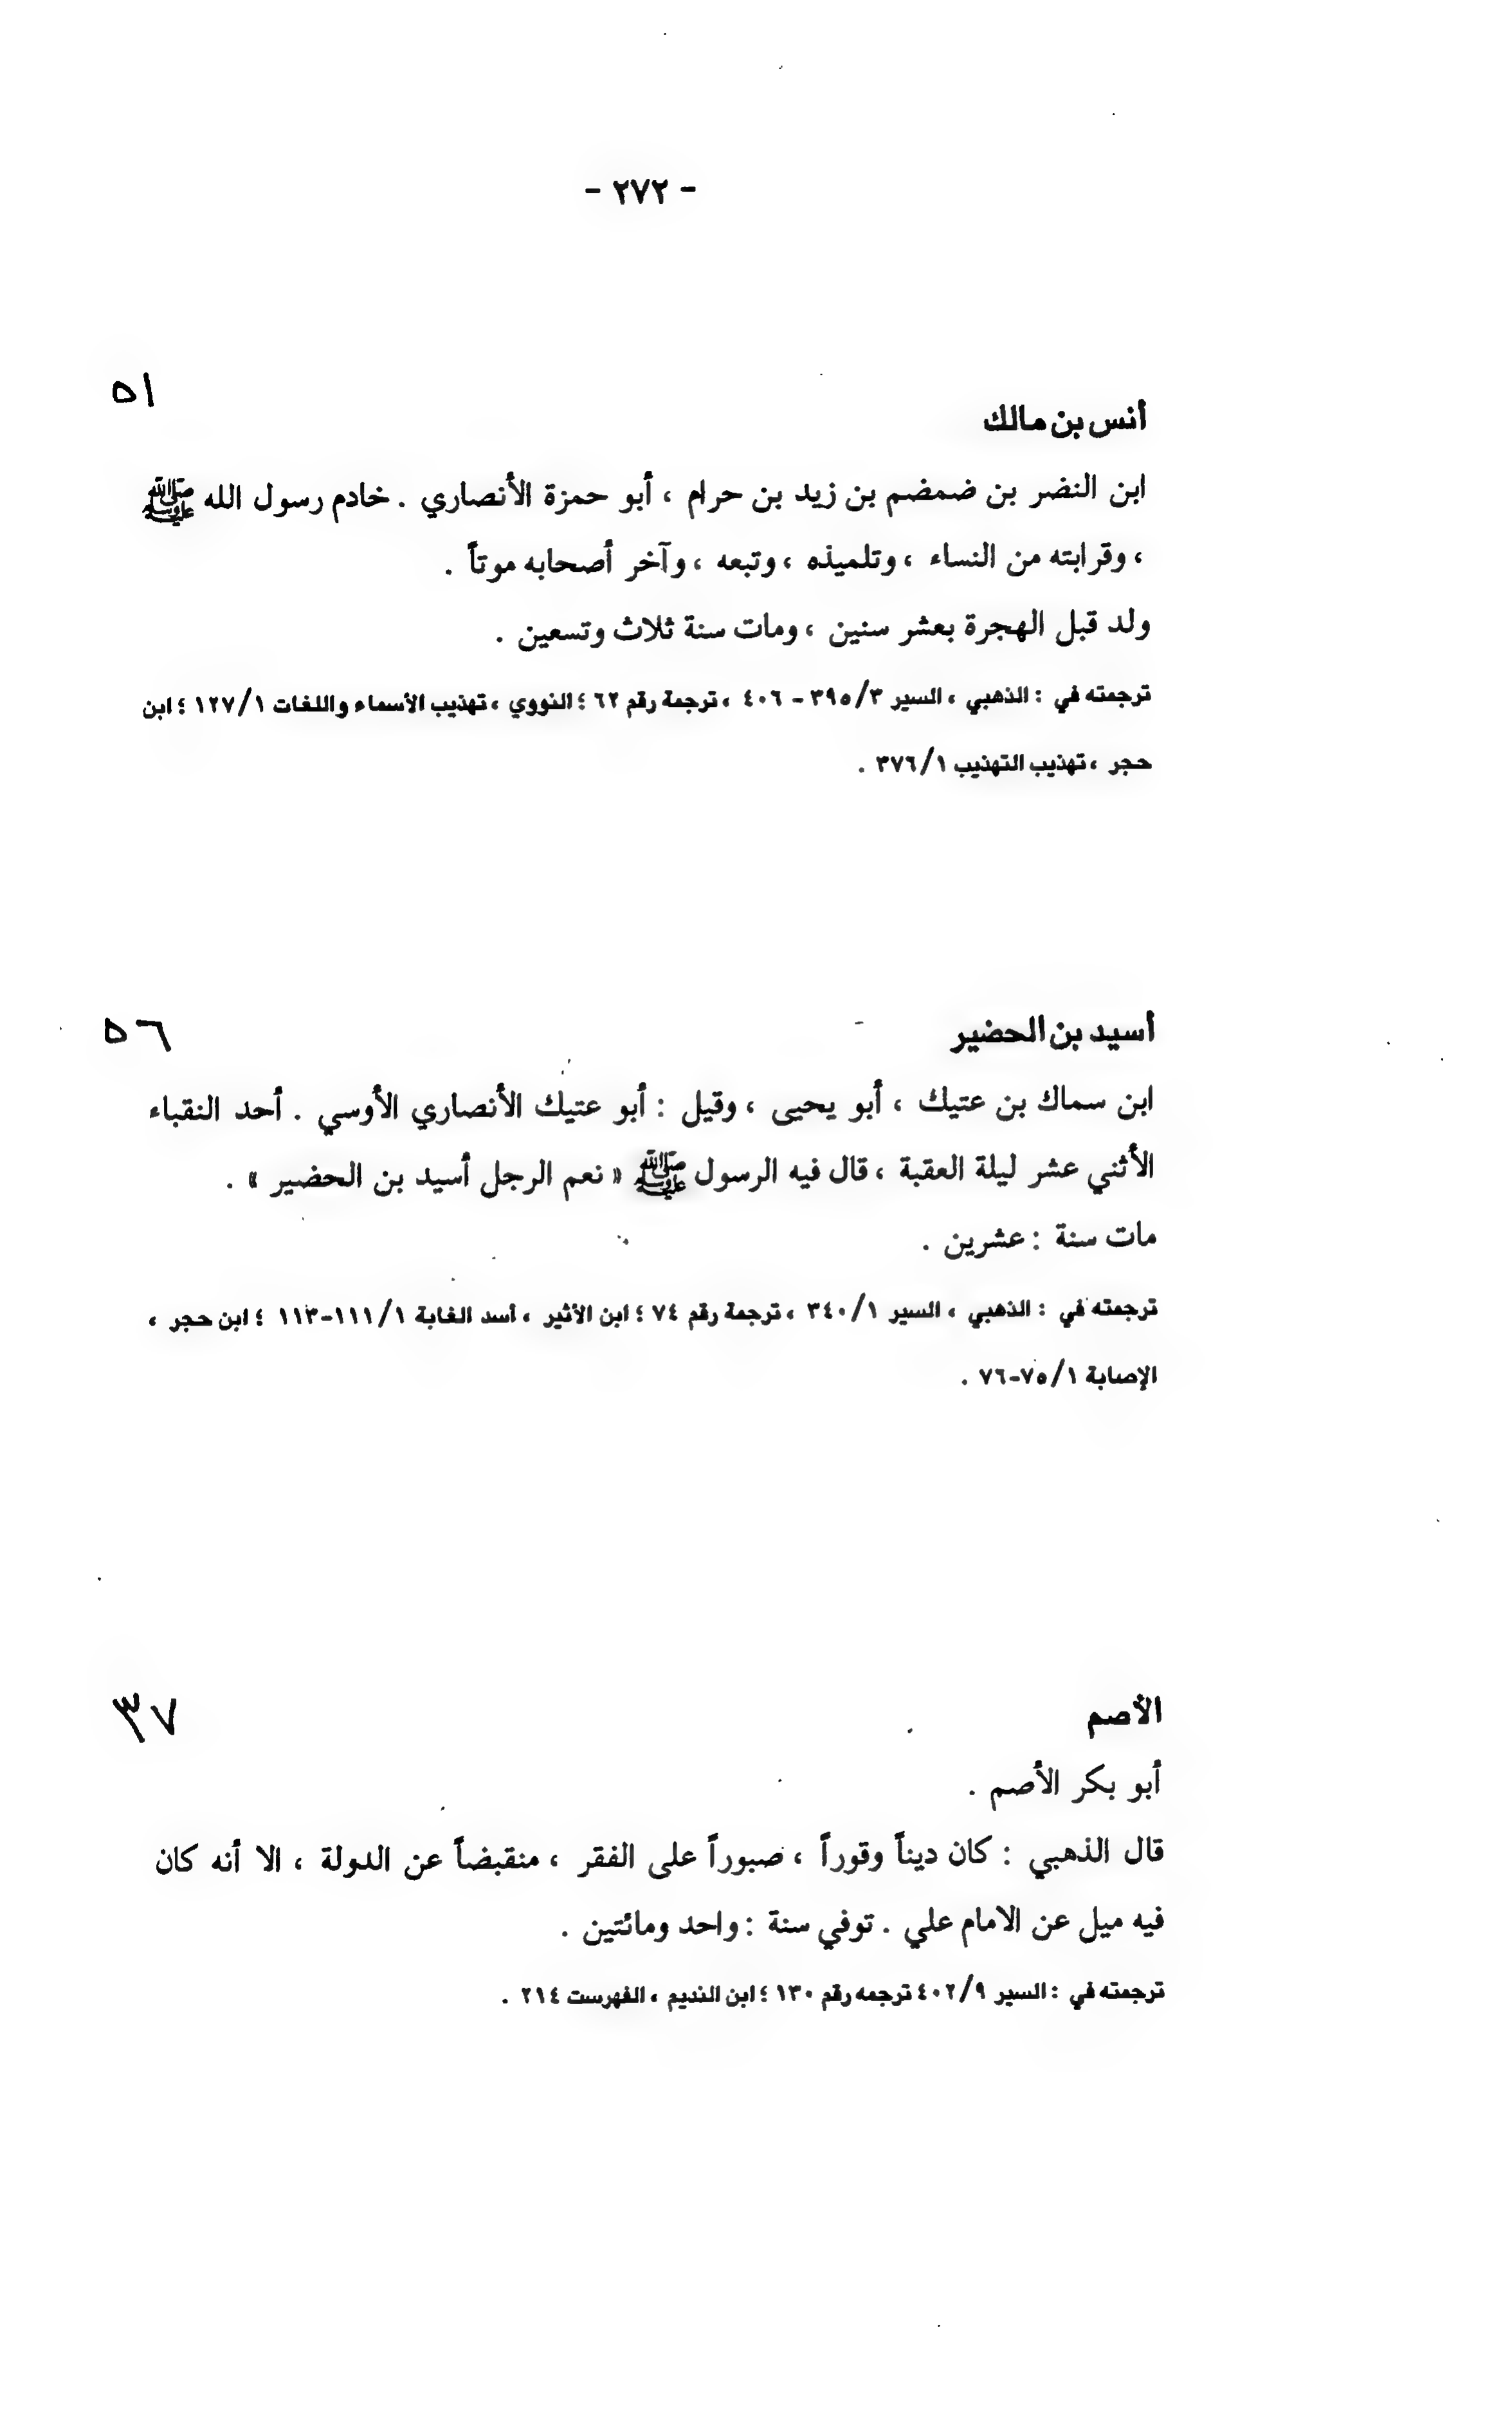 - ٢٧٢ -
٥١
أنس بن مالك
ابن النضر بن ضمضم بن زيد بن حرام ، أبو حمزة الأنصاري . خادم رسول الله ﷺ
، وقرابته من النساء ، وتلميذه ، وتبعه ، وآخر أصحابه موتاً .
ولد قبل الهجرة بعشر سنين ، ومات سنة ثلاث وتسعين .
ترجمته في : الذهبي ، السير ٣/ ٣٩٥ - ٤٠٦ ، ترجمة رقم ٦٢ ؛ النووي ، تهذيب الأسماء واللغات ١/ ١٢٧ ؛ ابن
حجر ، تهذيب التهذيب ١/ ٣٧٦ .
٥٦
أسيد بن الحضير
ابن سماك بن عتيك ، أبو يحيى ، وقيل : أبو عتيك الأنصاري الأوسي . أحد النقباء
الأثني عشر ليلة العقبة ، قال فيه الرسول ﷺ « نعم الرجل أسيد بن الحضير » .
مات سنة : عشرين .
ترجمته في : الذهبي ، السير ١/ ٣٤٠ ، ترجمة رقم ٧٤ ؛ ابن الأثير ، أسد الغابة ١/ ١١١-١١٣ ؛ ابن حجر ،
الإصابة ١/ ٧٥-٧٦ .
٣٧
الأصم
أبو بكر الأصم .
قال الذهبي : كان ديناً وقوراً ، صبوراً على الفقر ، منقبضاً عن الدولة ، الا أنه كان
فيه ميل عن الامام علي . توفي سنة : واحد ومائتين .
ترجمته في : السير ٩/ ٤٠٢ ترجمه رقم ١٣٠ ؛ ابن النديم ، الفهرست ٢١٤ .